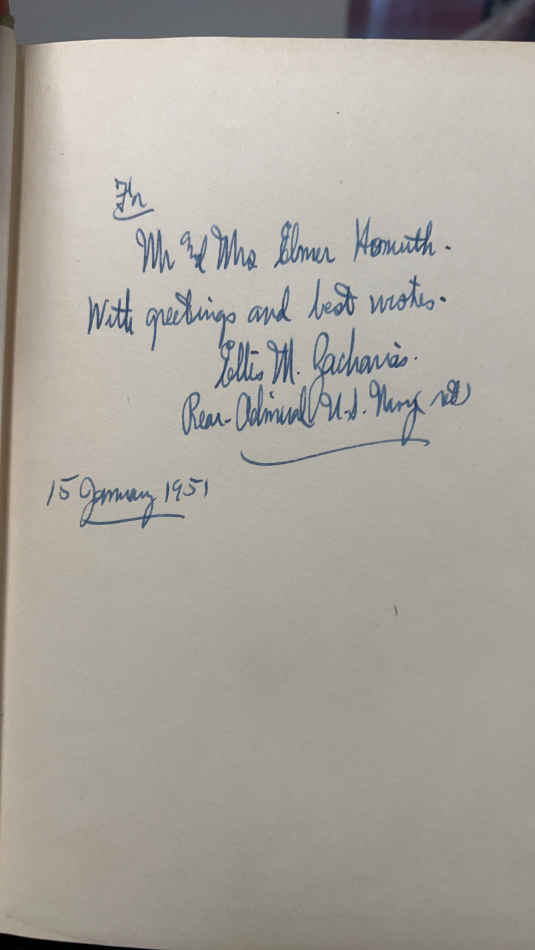 For
Mr and Mrs Elmer Homuth.
With greetings and best wishes.
Ellis M. Zacharias.
Rear-Admiral U.S. Navy ret
15 January 1951